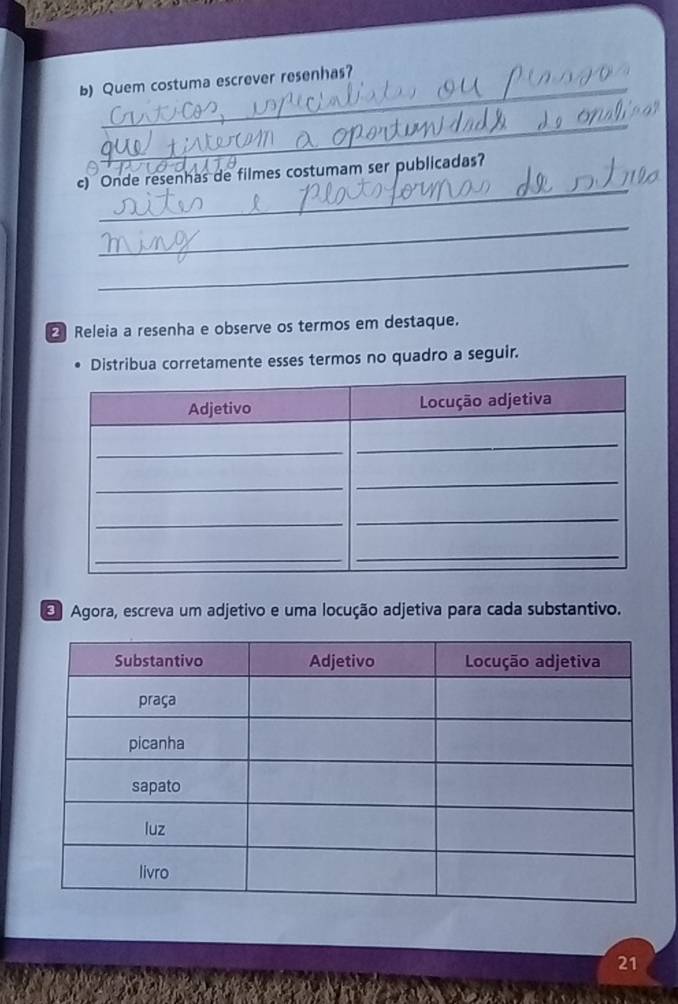 b) Quem costuma escrever resenhas?
Criticos, especialistas ou pessoas
que tiverem a oportunidade de analisar
o produto
c) Onde resenhas de filmes costumam ser publicadas?
sites e plataformas de strea
ming
2 Releia a resenha e observe os termos em destaque.
• Distribua corretamente esses termos no quadro a seguir.
Adjetivo Locução adjetiva
3 Agora, escreva um adjetivo e uma locução adjetiva para cada substantivo.
Substantivo Adjetivo Locução adjetiva
praça
picanha
sapato
luz
livro
21